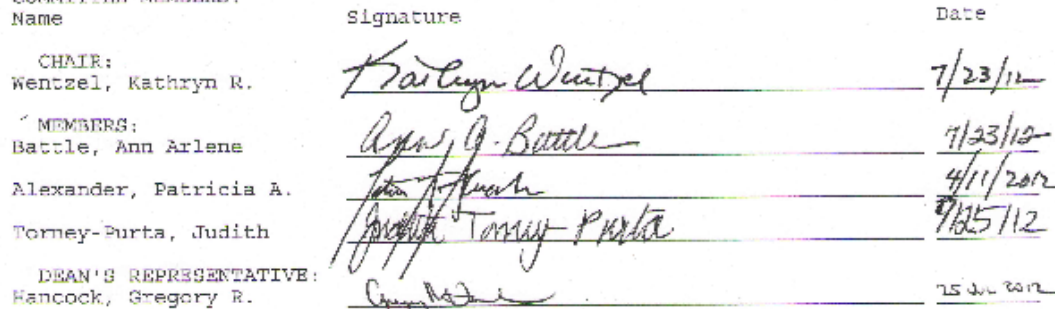 COMMITTEE MEMBERS:
Name Signature Date
CHAIR:
Wentzel, Kathryn R. Kathryn Wentzel 7/23/12
MEMBERS:
Battle, Ann Arlene Ann A. Battle 7/23/12
Alexander, Patricia A. 4/11/2012
Torney-Purta, Judith Judith Torney-Purta 7/25/12
DEAN'S REPRESENTATIVE:
Hancock, Gregory R. 25 2012